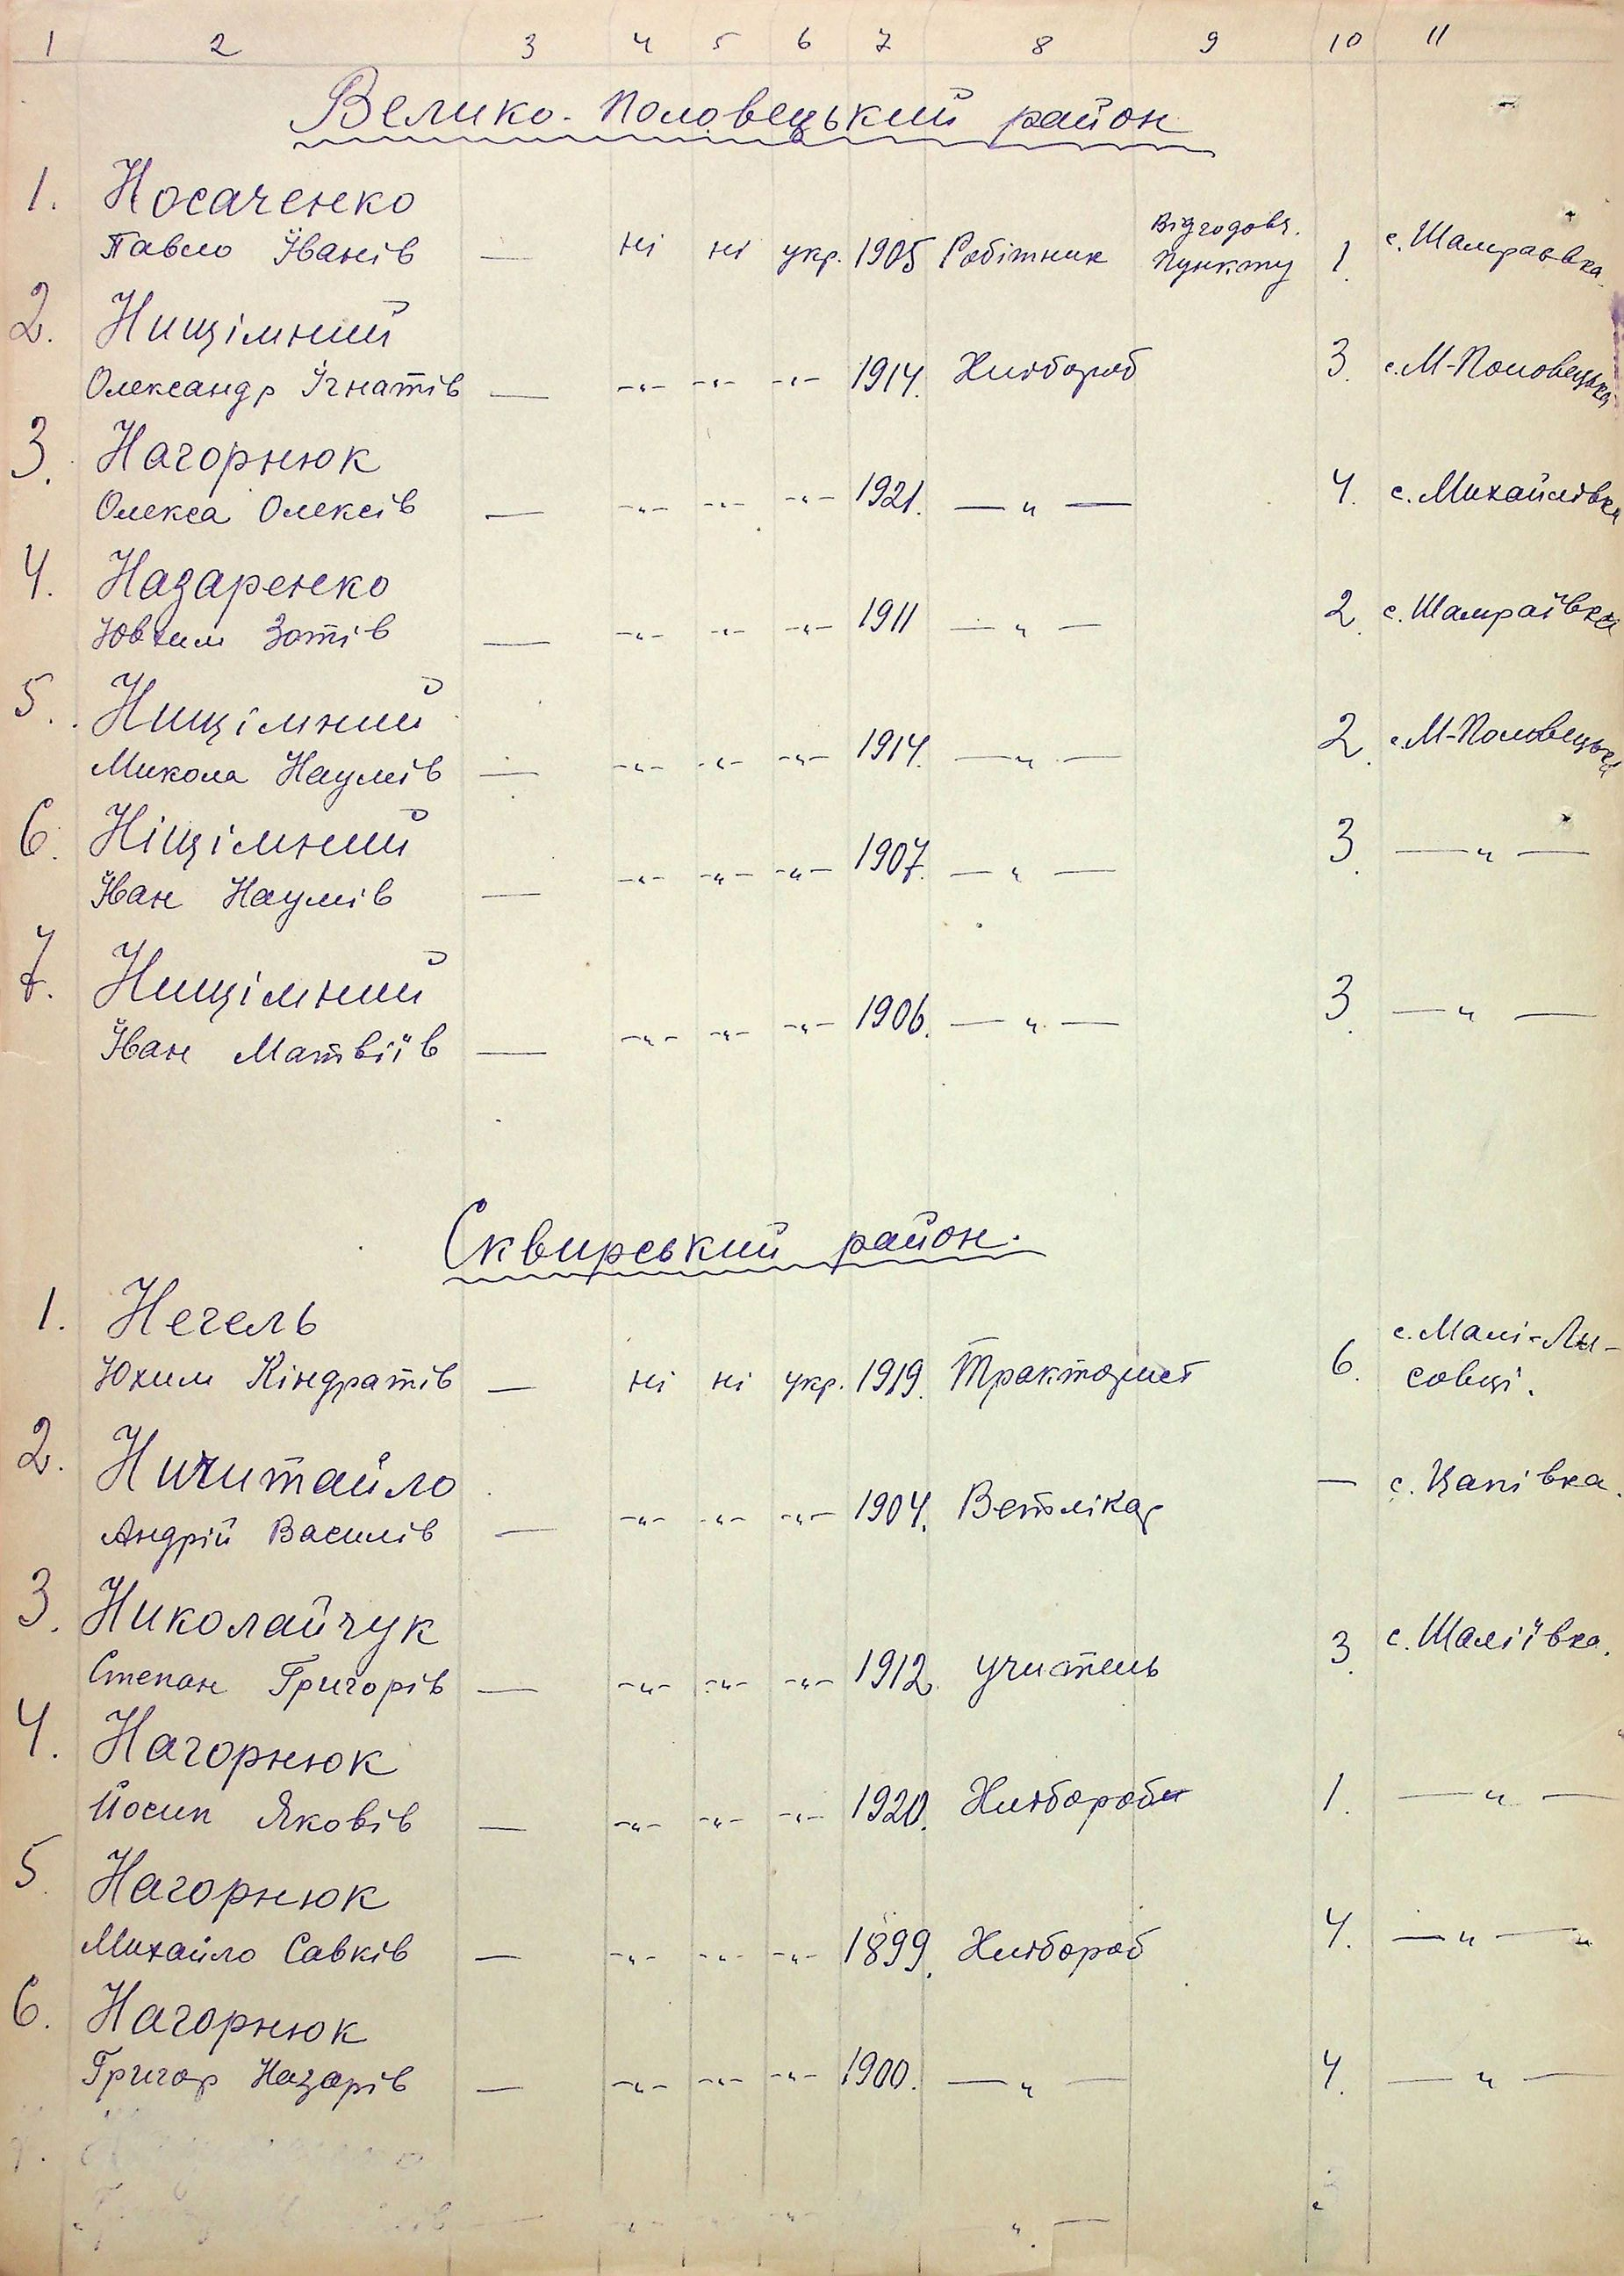 1 2 3 4 5 6 7 8 9 10 11
Велико-Половецький район
1. Носаченко
Павло Іванів — ні ні укр. 1905 Робітник Відгодовч. пункту 1. с. Шамраєвка.
2. Нищімний
Олександр Ігнатів — -"- -"- -"- 1914. Хлібороб 3. с. М-Половецька
3. Нагорнюк
Олекса Олексів — -"- -"- -"- 1921. — " — 4. с. Михайлівка
4. Назаренко
Ювхим Зотів — -"- -"- -"- 1911 — " — 2. с. Шамраївка
5. Нищімний
Микола Наумів — -"- -"- -"- 1914. — " — 2. с. М-Половецька
6. Ніщімний
Іван Наумів — -"- -"- -"- 1907. — " — 3. — " —
7. Нищімний
Іван Матвіїв — -"- -"- -"- 1906. — " — 3. — " —
Сквирський район.
1. Негель
Юхим Кіндратів — ні ні укр. 1919. Тракторист 6. с. Малі-Ли-
совці.
2. Ничитайло
Андрій Василів — -"- -"- -"- 1904. Ветлікар — с. Цапівка.
3. Николайчук
Степан Григорів — -"- -"- -"- 1912. учитель 3. с. Шаліївка.
4. Нагорнюк
Йосип Яковів — -"- -"- -"- 1920. Хлібороби 1. — " —
5. Нагорнюк
Михайло Савків — -"- -"- -"- 1899. Хлібороб 4. — " — "
6. Нагорнюк
Григор Назарів — -"- -"- -"- 1900. — " — 4. — " —